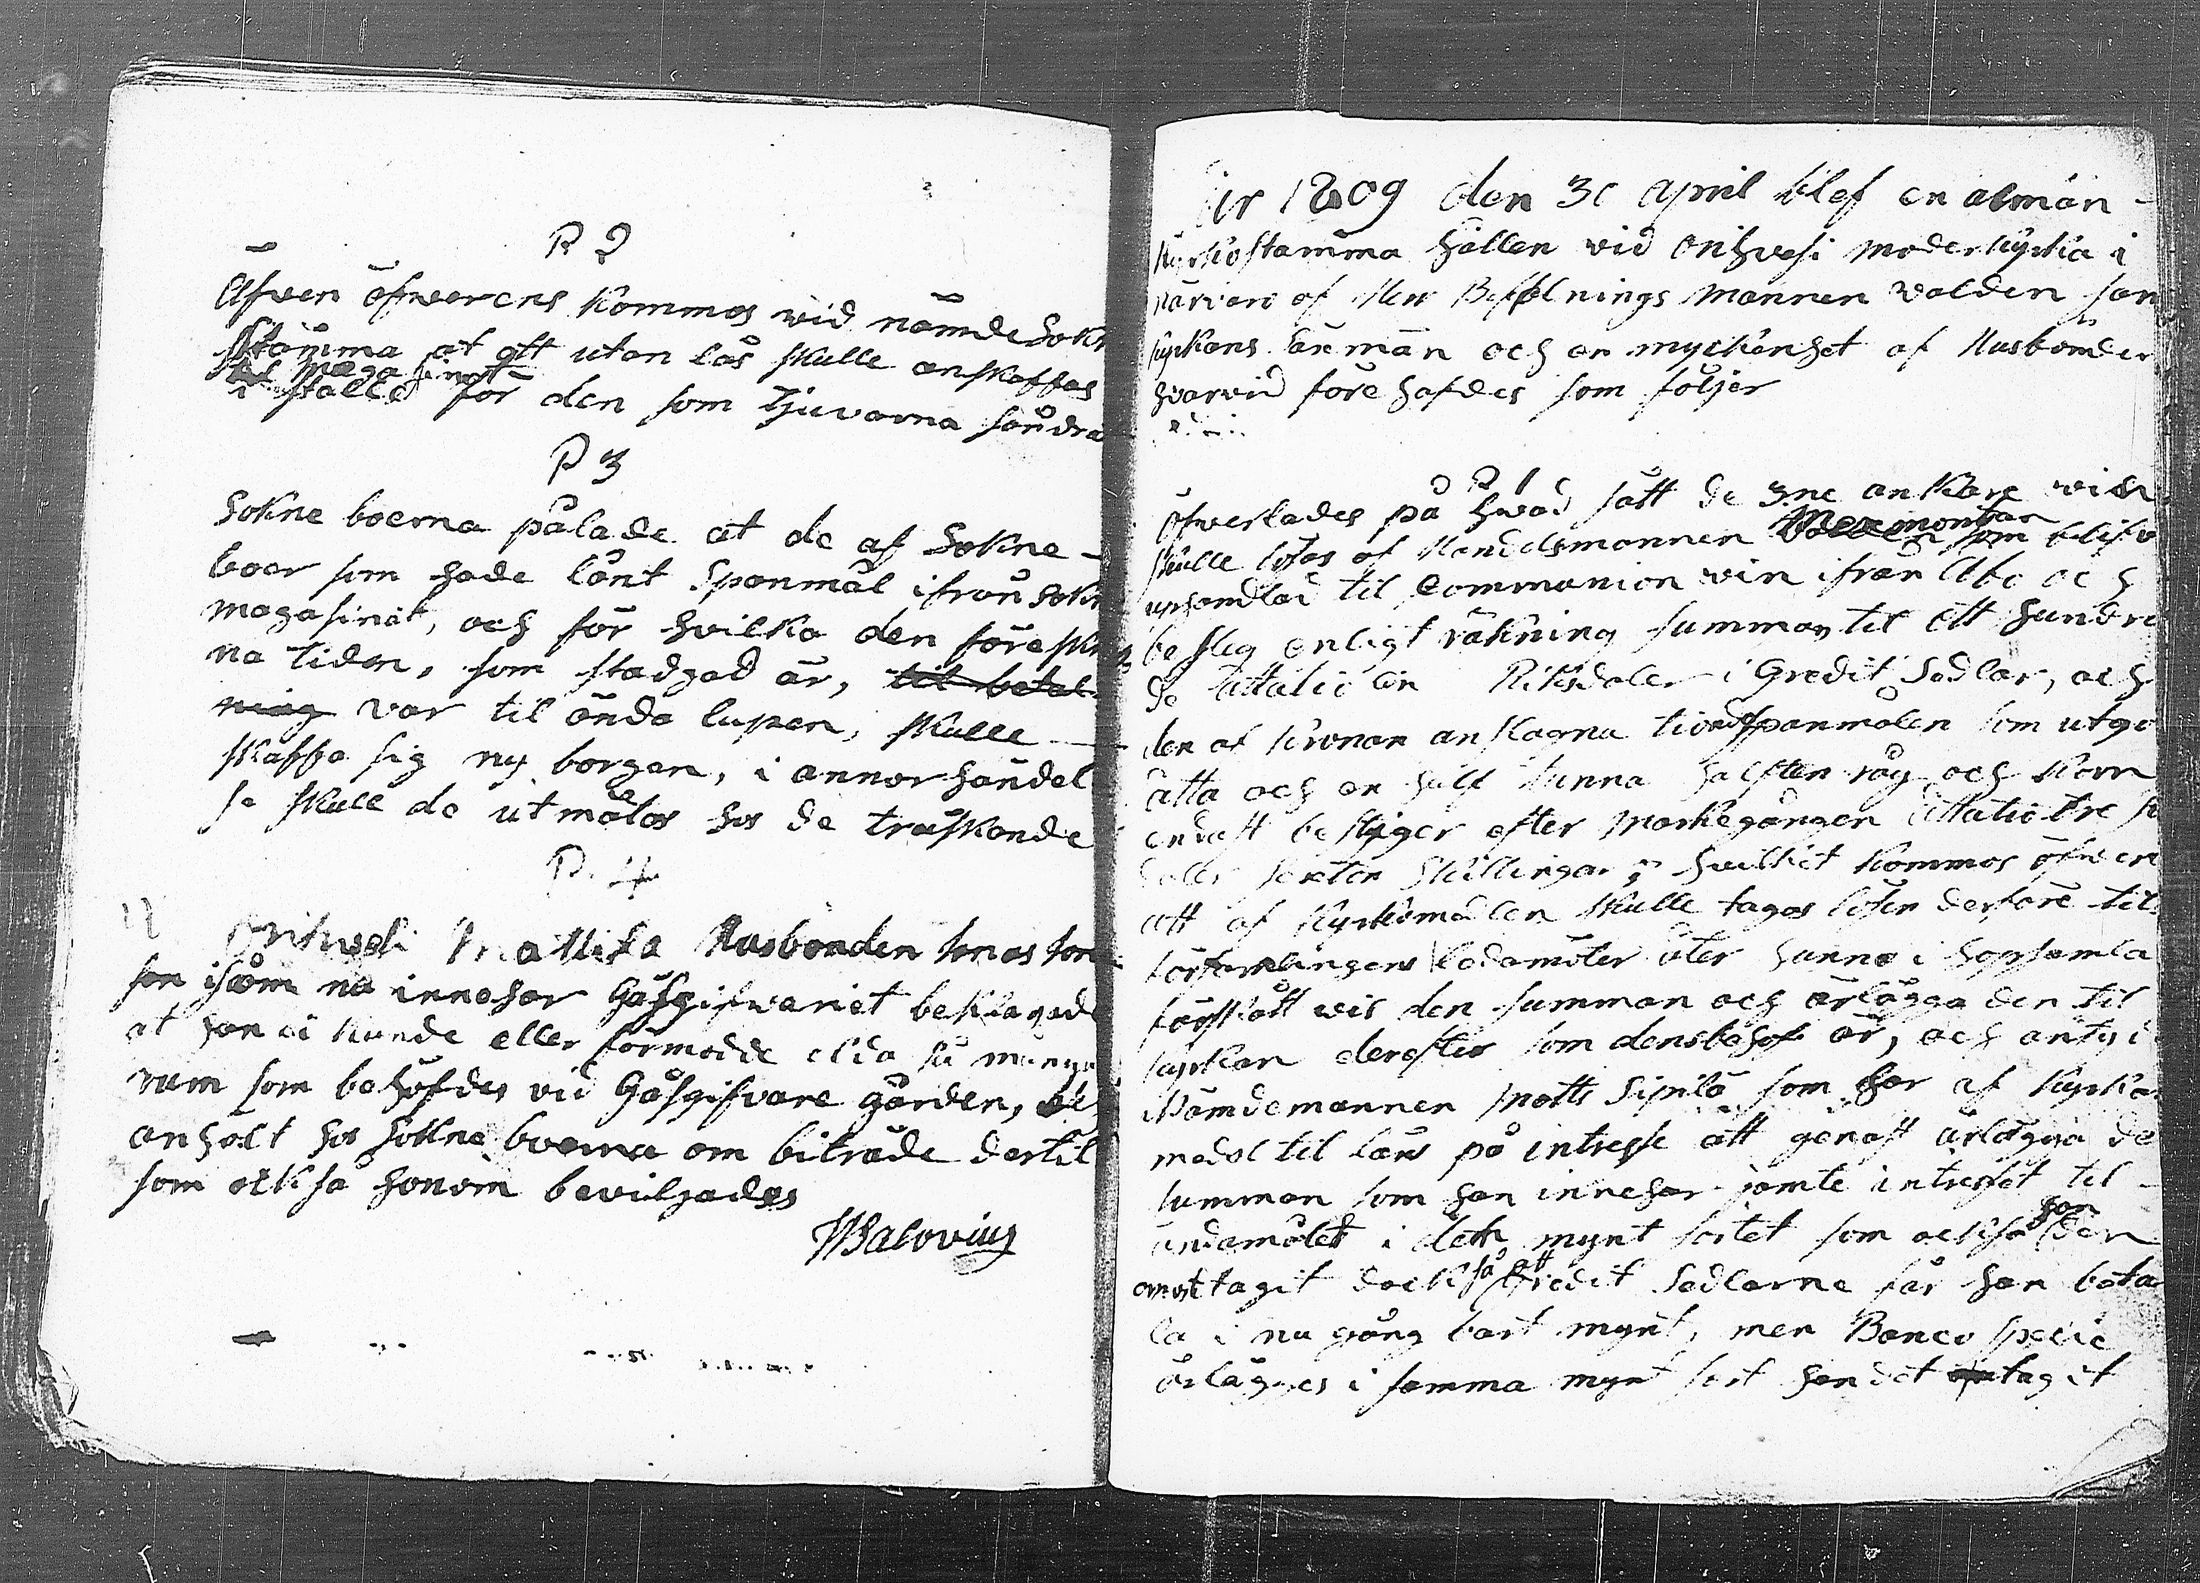 P 2
Äfwen öfwerens kommos wid nämde Sokn
stämma at ett utan lås skulle anskaffas
til magasinet
i stället för den som tjuvarna söndra
P 3
Sokne boerna pålade at de af Sokne-
boer som hade lånt Spanmål ifrån Sokn
magasinet, och för hvilka denföreskrif
na tiden, som stadgad är, til betal-
ning var til ända lupen, skulle
skaffa sig ny borgen, i annor händel
se skull de utmätas hos de träskande
P. 4
Orihvesi Mattila Husbonden Jonas Jon
son isom nu innehar Gäsgifweriet beklagade
at han ei kunde eller förmodde elda så många
rum som behöfdes vid Gäsgifvare gården,
anhölt hos Sokne boerna om biträde dertil
som ock så honom beviljades
Salovius
År 1809 den 30 april blef en almän
kyrkostämma hållen wid Orihvesi moderkyrka i
närvaro af Herr Befalnings mannen Walden sam
kyrkans Säxmän och en myckenhet af Husbönder
hvarvid före hafdes som följer
P 1
Öfverlades på hwad sätt de 3ne ankare win
skulle lösas af Handelsmannen som blifv
uphandlad til Communion win ifrån Åbo och
besteg enligt räkning summan til Ett hundra
de åttatio en Riksdaler i Credit Sedlar, och
den af Kronan anslagna tiondespanmålen som utgö
åtta och en half tunna hälften råg och korn
endast bestiger efter markegången åttatio tre
daler sexton Skillingar; hvilket kommos öfveren
att af kyrkomedlen skulle tagas lösen derföre til
församlingens ledamöter åter hunne i hopsamla
tågskått vis den summan och ärlägga den til
kyrkan derefter som dens behof är, och antyd
Nämdemannen Matts Sipilä som har af kyrko
medel til låns på intresse att genast ärlägga de
summan som han innehar jämte intresset til
ändamålet i deth mynt sortet som också han den
emottagit dock så att Credit Sedlarne får han beta
la i nu gång bart mynt, men Banco specie
ärlägges i samma mynt sort han det tagit